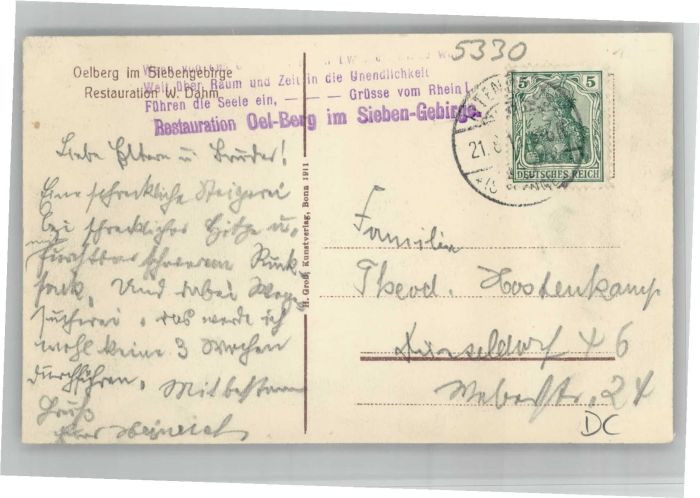 5330
Oelberg im Siebengebirge
Restauration W. Dahm
Weit über Raum und Zeit in die Unendlichkeit
Führen die Seele ein, — — — Grüsse vom Rhein!
Restauration Oel-Berg im Sieben-Gebirge.
5 5
DEUTSCHES REICH
21.8.1
Liebe Eltern u. Bruder!
Eine schreckliche Steigerei
bei schrecklicher Hitze u.
furchtbar schwerem Ruck
sack. Und dabei Wege
sucherei. Das werde ich
wohl keine 3 Wochen
durchführen. Mit bestem
Gruß
Heinrich
H. Groß, Kunstverlag, Bonn 1911
Familie
Theod. Hostenkamp
Düsseldorf
Weberstr. 24
DC